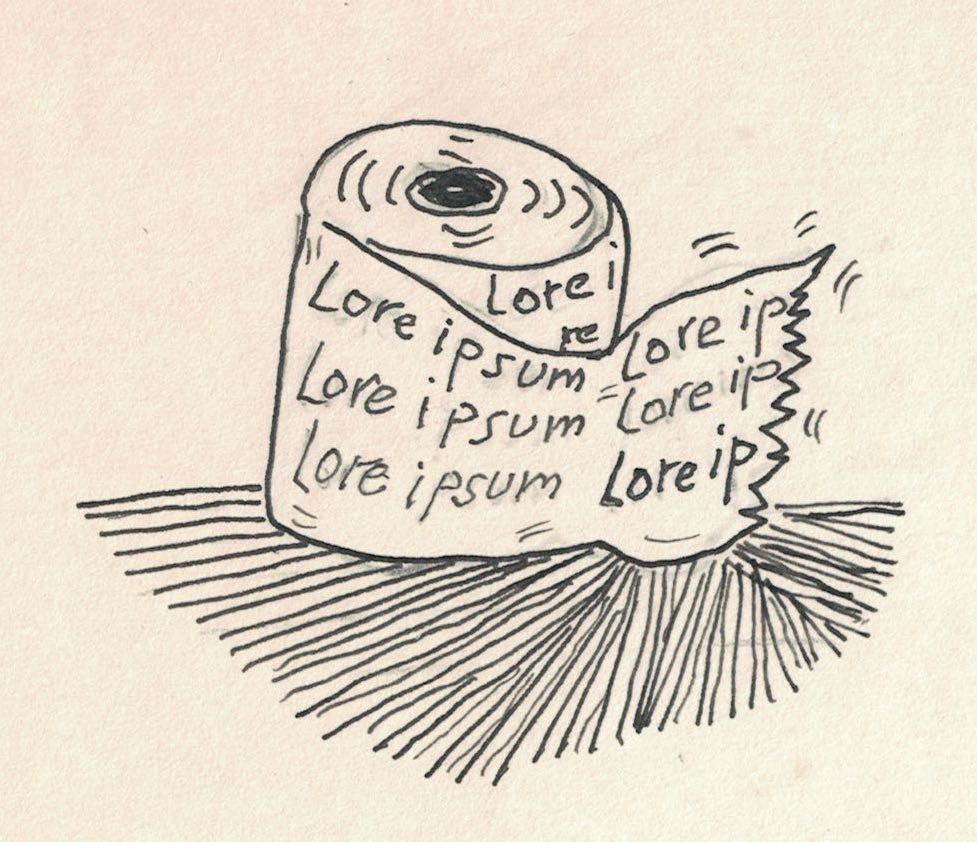 Lore i
re
Lore ipsum
Lore ipsum
Lore ipsum
Lore ip
Lore ip
Lore ip